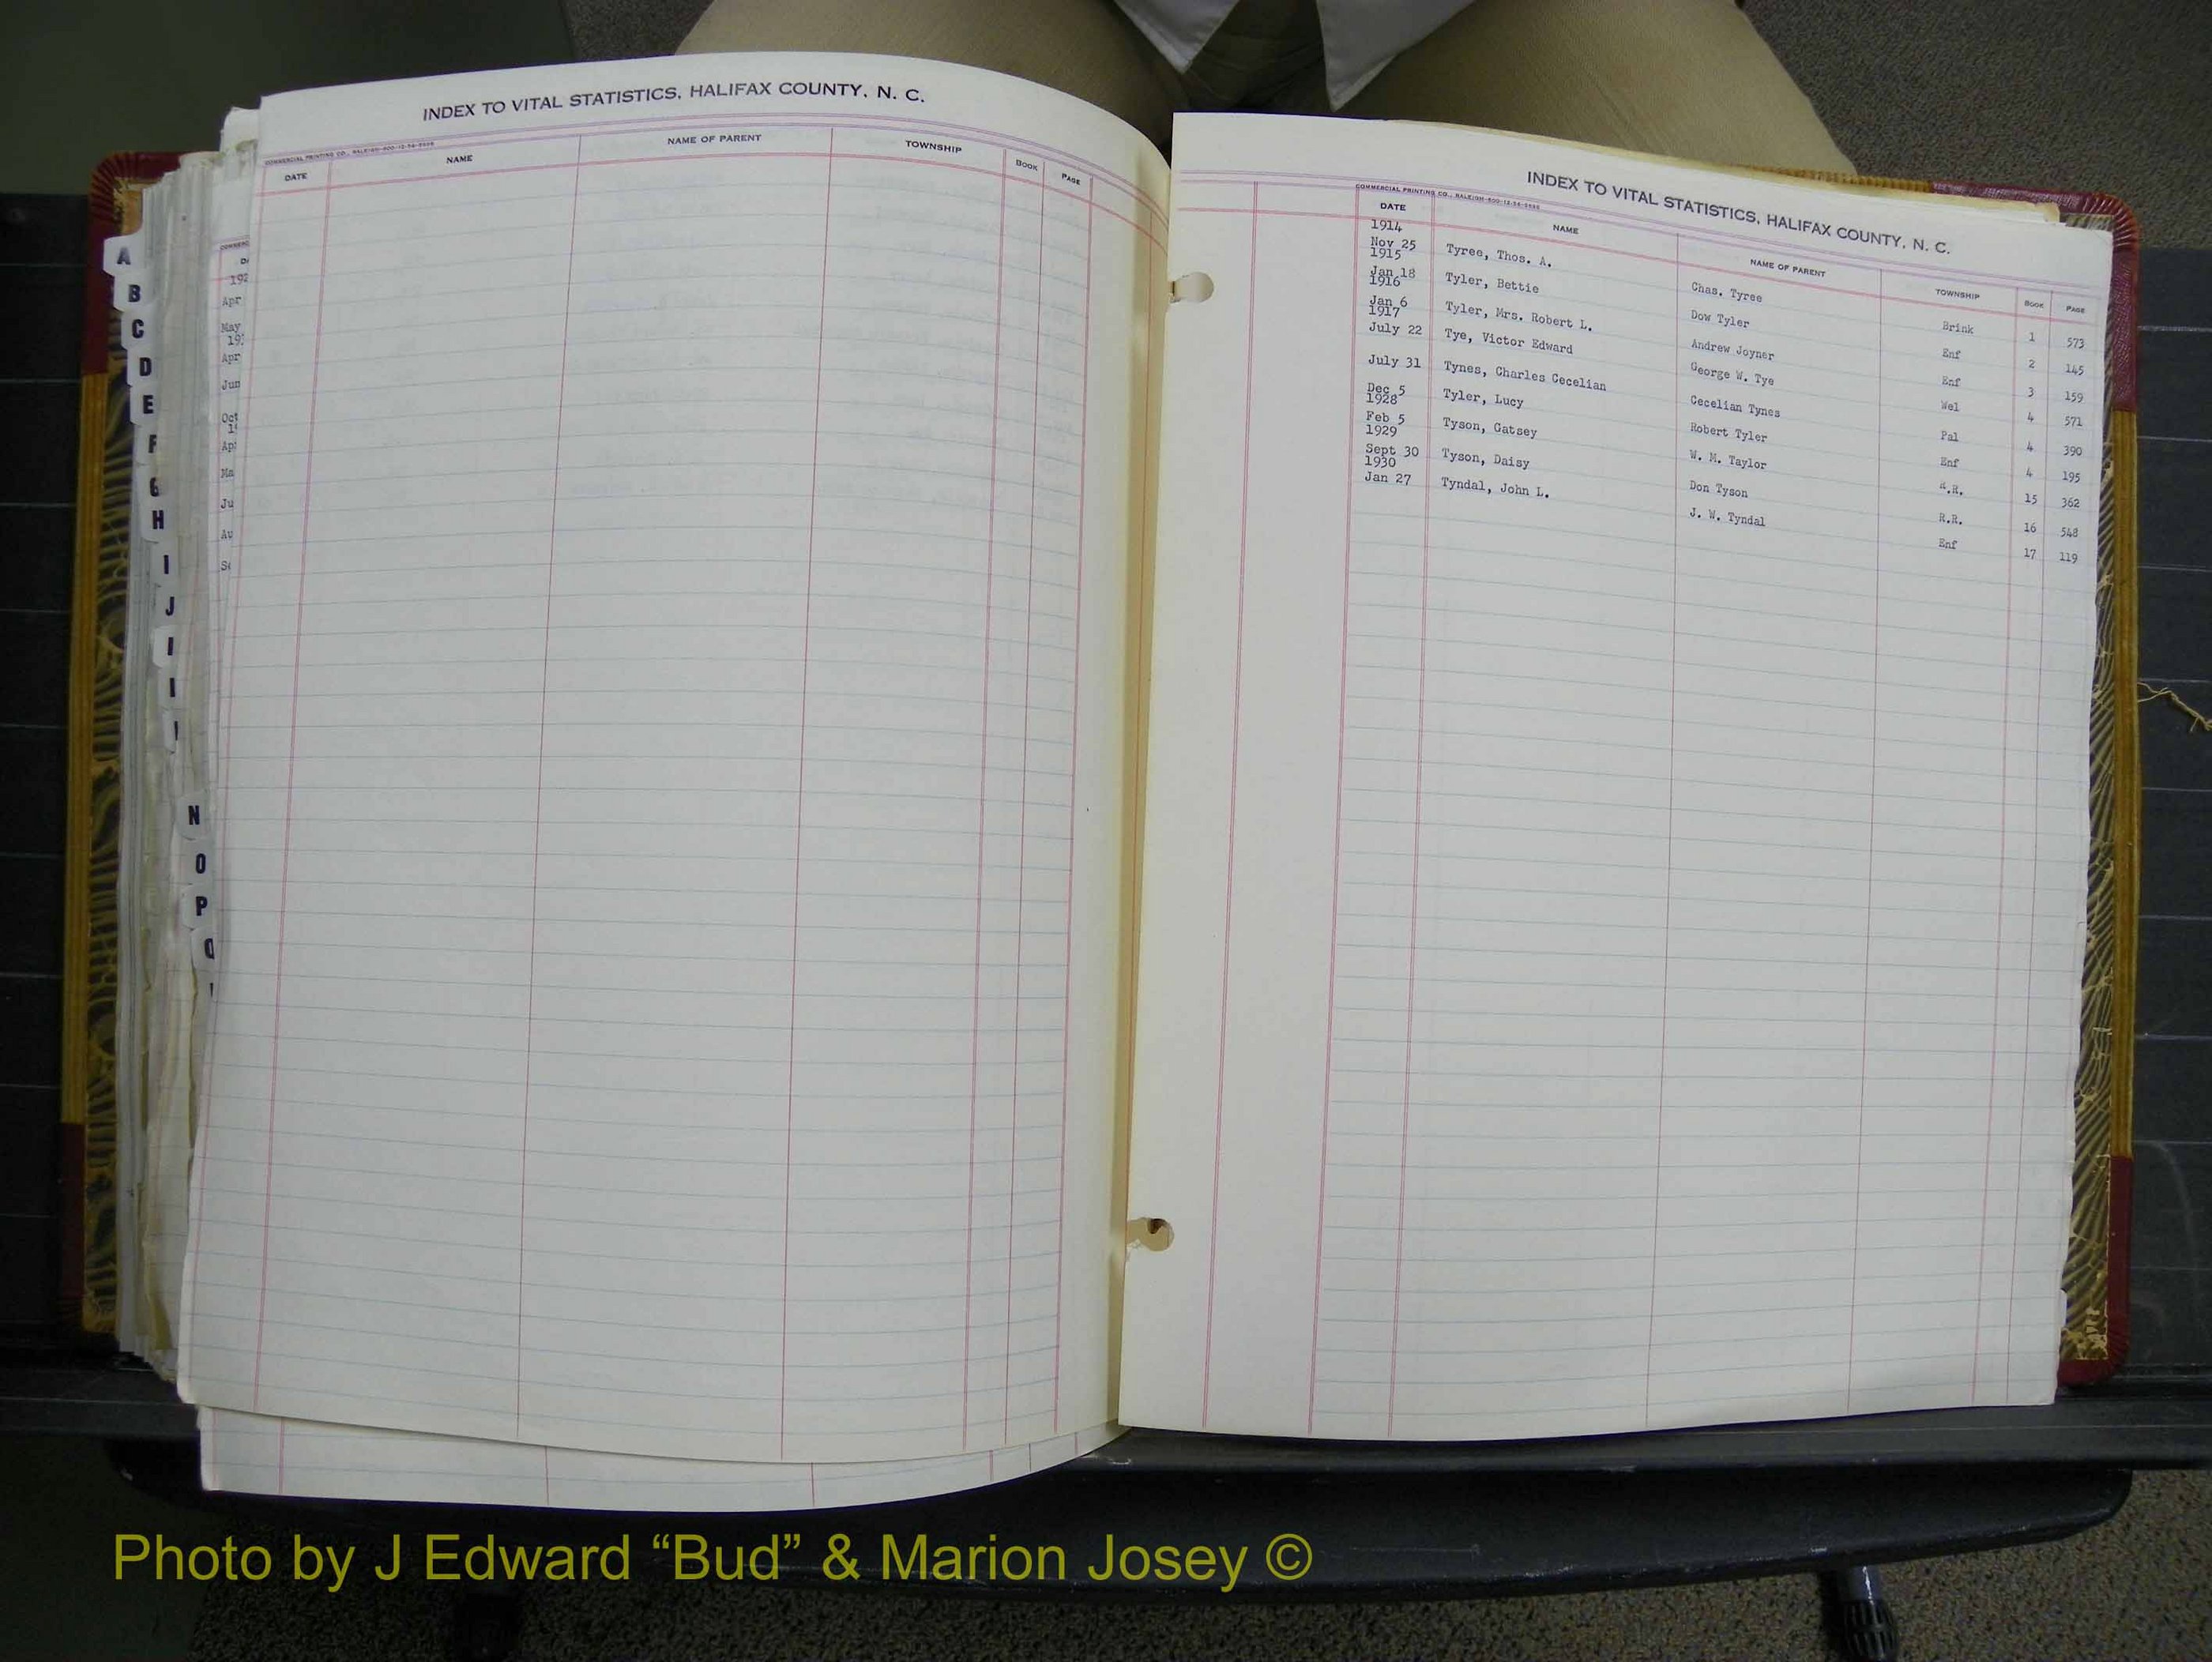 INDEX TO VITAL STATISTICS, HALIFAX COUNTY, N. C.
COMMERCIAL PRINTING CO., RALEIGH
DATE NAME NAME OF PARENT TOWNSHIP BOOK PAGE
192
Apr
May
Apr
Jun
Oct
Ju
A
B
C
D
E
F
G
H
I
J
N
O
P
INDEX TO VITAL STATISTICS, HALIFAX COUNTY, N. C.
COMMERCIAL PRINTING CO., RALEIGH
DATE NAME NAME OF PARENT TOWNSHIP BOOK PAGE
1914
Nov 25 Tyree, Thos. A. Chas. Tyree Brink 1 573
1915
Jan 18 Tyler, Bettie Dow Tyler Enf 2 145
1916
Jan 6 Tyler, Mrs. Robert L. Andrew Joyner Enf 3 159
1917
July 22 Tye, Victor Edward George W. Tye Wel 4 571
July 31 Tynes, Charles Cecelian Cecelian Tynes Pal 4 390
Dec 5 Tyler, Lucy Robert Tyler Enf 4 195
1928
Feb 5 Tyson, Gatsey W. M. Taylor R.R. 15 362
1929
Sept 30 Tyson, Daisy Don Tyson R.R. 16 548
1930
Jan 27 Tyndal, John L. J. W. Tyndal Enf 17 119
Photo by J Edward “Bud” & Marion Josey ©